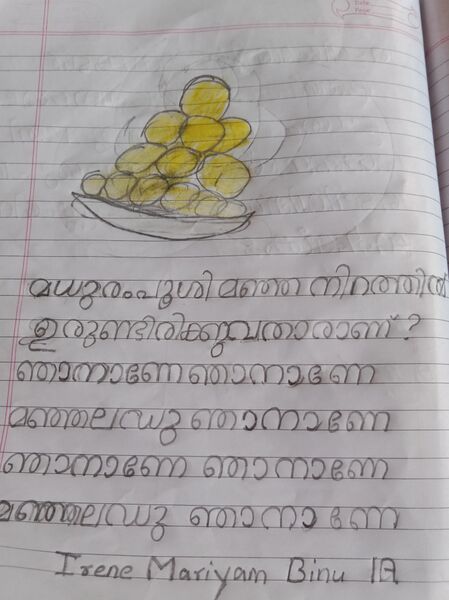 Date
Page
മധുരംപൂശി മഞ്ഞ നിറത്തിൽ
ഉരുണ്ടിരിക്കുവതാരാണ്?
ഞാനാണേ ഞാനാണേ
മഞ്ഞലഡു ഞാനാണേ
ഞാനാണേ ഞാനാണേ
മഞ്ഞലഡു ഞാനാണേ
Irene Mariyam Binu 1A